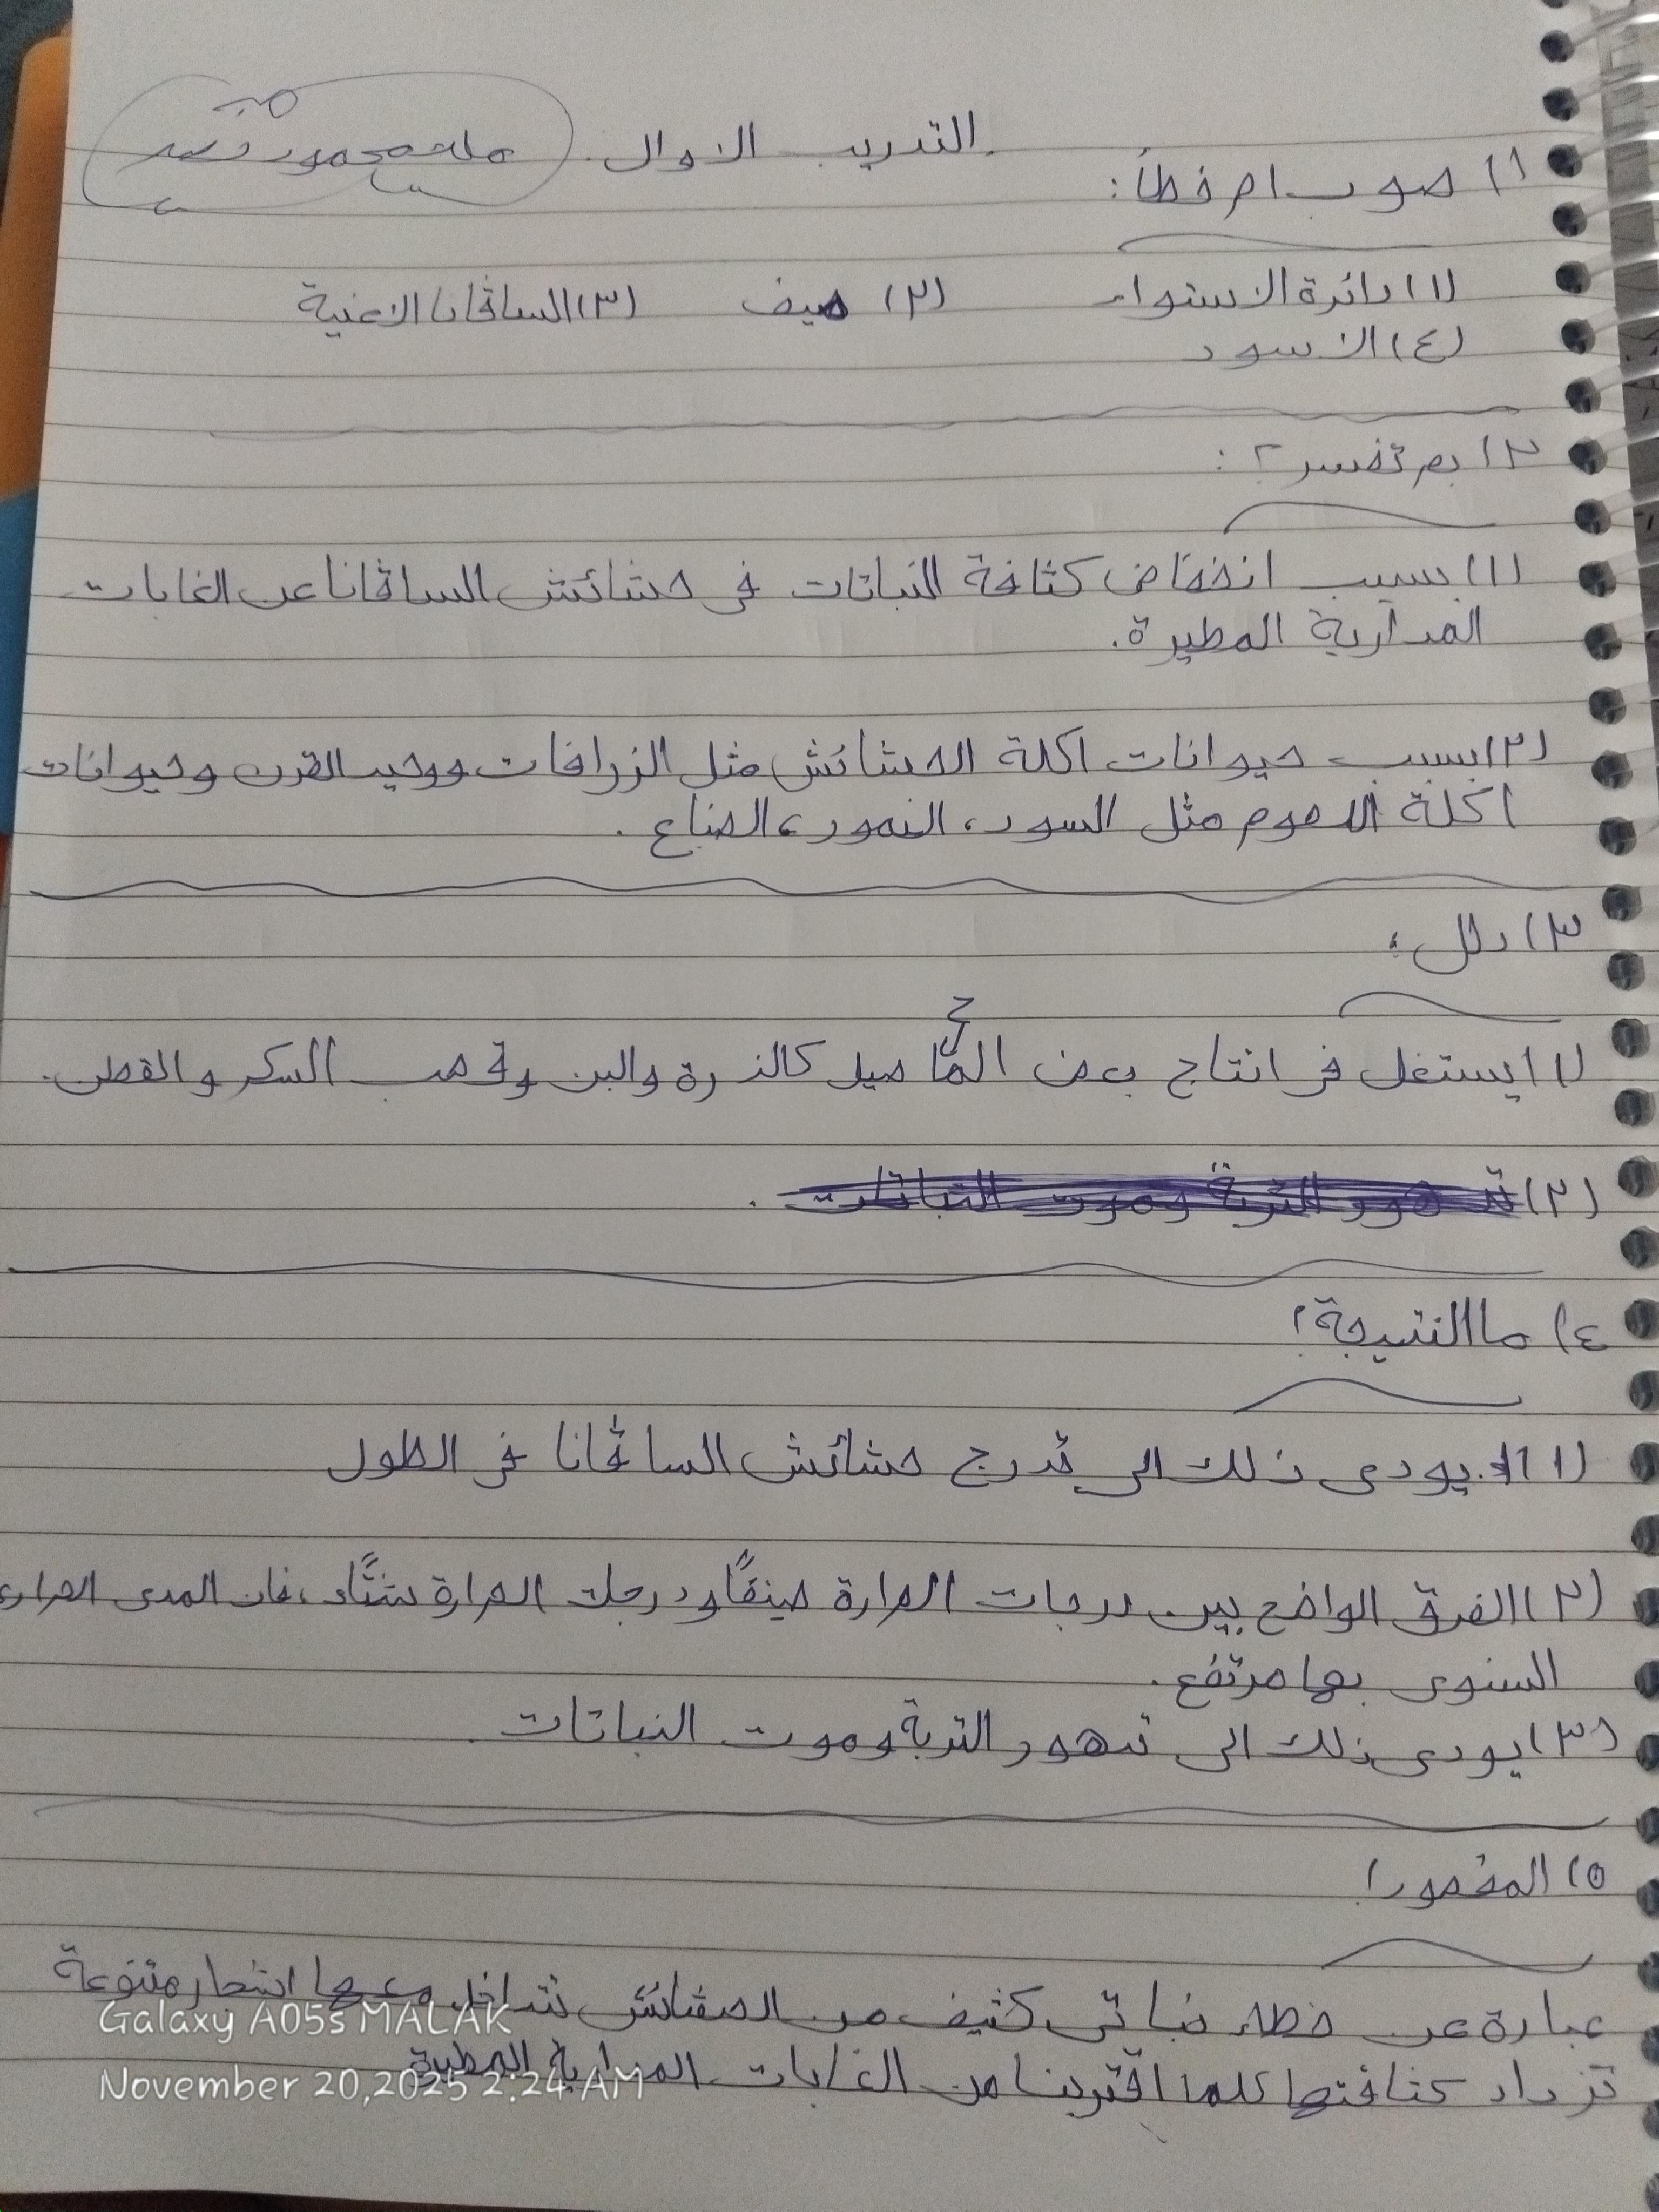 التدريب الاوال.
ملك محمود
١) صوب ام خطأ:
(١) دائرة الاستواء (٢) صيف (٣) السافانا الاغنية
(٤) الاسود
٢) بم تفسر؟:
(١) بسبب انخفاض كثافة النباتات فى حشائش الساڤانا عن الغابات
المدارية المطيرة.
(٢) بسبب حيوانات اكلة الحشائش مثل الزرافات ووحيد القرن وحيوانات
اكلة الحوم مثل السود، النمور، الضباع.
٣) دلل:
(١) يستغل فى انتاج بعض المحاصيل كالذرة والبن وقصب السكر والقطن.
(٢) تدهور التربة وموت النباتات.
٤) ما النتيجة؟
(١) يودى ذلك الى تدرج حشائش الساڤانا فى الطول
(٢) الفرق الواضح بين درجات الحرارة صيفًا ودرجات الحرارة شتاًء، فان المدى الحرارى
السنوى بها مرتفع.
(٣) يودى ذلك الى تدهور التربة وموت النباتات.
٥) المقصود
عبارة عن غطاء نباتى كثيف من الحشائش تتداخل معها اشجار متنوعة
تزداد كثافتها كلما اقتربنا من الغابات المدارية المطيرة
Galaxy A05s MALAK
November 20,2025 2:24 AM